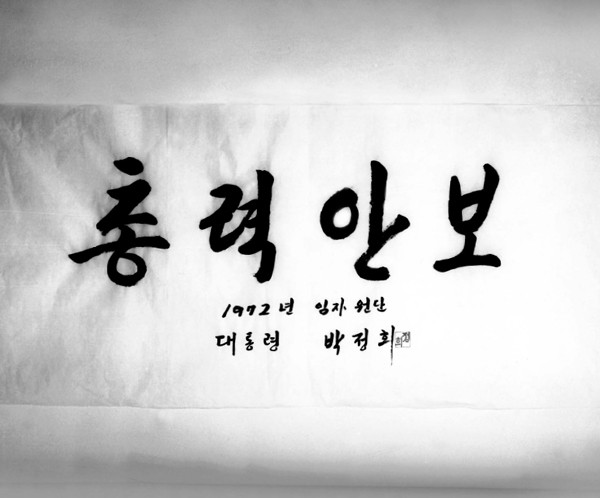 총력안보
1972년 임자 원단
대통령 박정희
정희